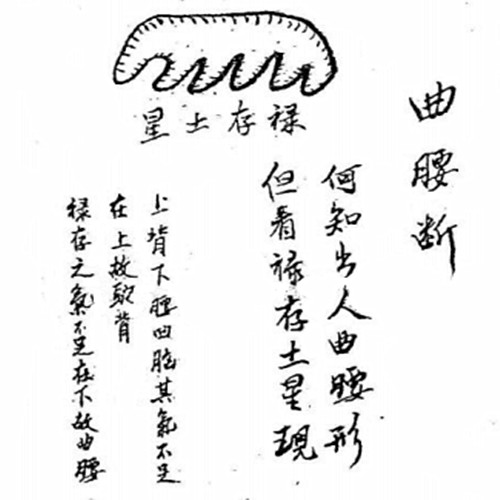 曲腰断
何知出人曲腰形
但看禄存土星現
禄存土星
上背下腰其氣不足
在上故駝背
禄存之氣不足在下故曲腰